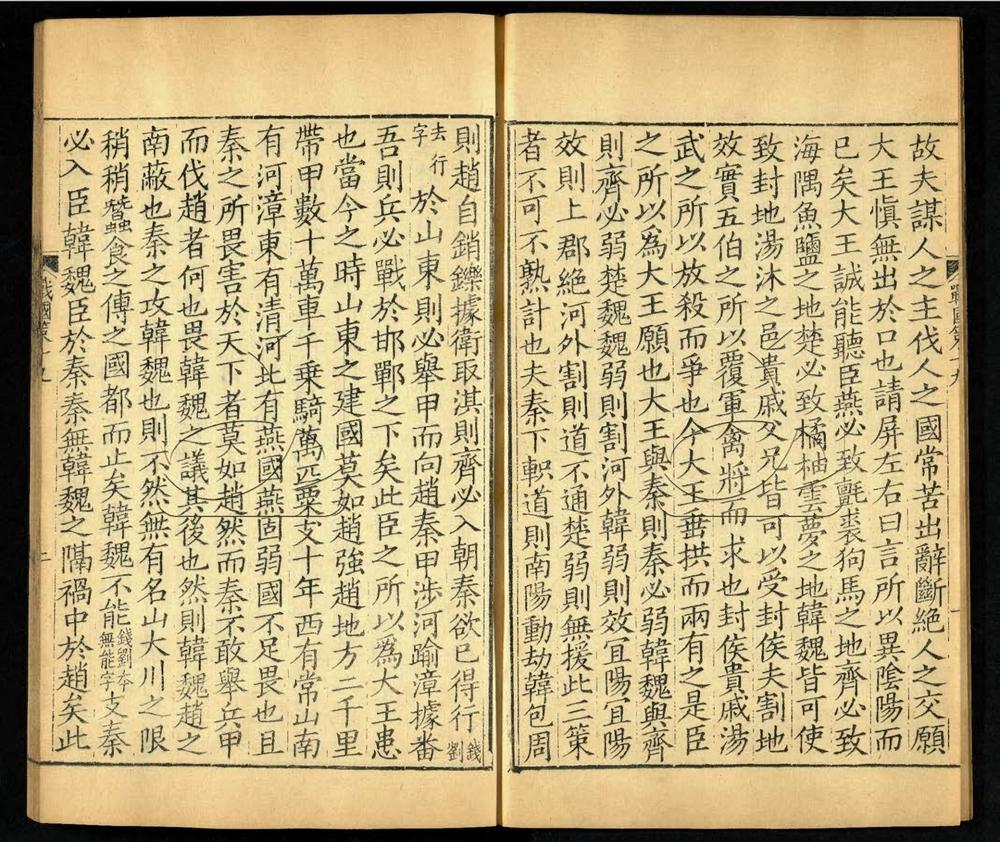 故夫謀人之主伐人之國常苦出辭斷絕人之交願
大王慎無出於口也請屏左右曰言所以異陰陽而
已矣大王誠能聽臣燕必致氈裘狗馬之地齊必致
海隅魚鹽之地楚必致橘柚雲夢之地韓魏皆可使
致封地湯沐之邑貴戚父兄皆可以受封侯夫割地
效實五伯之所以覆軍禽將而求也封侯貴戚湯
武之所以放殺而爭也今大王垂拱而兩有之是臣
之所以為大王願也大王與秦則秦必弱韓魏與齊
則齊必弱楚魏魏弱則割河外韓弱則效宜陽宜陽
效則上郡絕河外割則道不通楚弱則無援此三策
者不可不熟計也夫秦下軹道則南陽動劫韓包周
戰國策十九
一
則趙自銷鑠據衛取淇則齊必入朝秦欲已得行錢劉
去行字於山東則必舉甲而向趙秦甲涉河踰漳據番
吾則兵必戰於邯鄲之下矣此臣之所以為大王患
也當今之時山東之建國莫如趙強趙地方二千里
帶甲數十萬車千乘騎萬匹粟支十年西有常山南
有河漳東有清河北有燕國燕固弱國不足畏也且
秦之所畏害於天下者莫如趙然而秦不敢舉兵甲
而伐趙者何也畏韓魏之議其後也然則韓魏趙之
南蔽也秦之攻韓魏也則不然無有名山大川之限
稍稍蠶食之傅之國都而止矣韓魏不能錢劉本無能字支秦
必入臣韓魏臣於秦秦無韓魏之隔禍中於趙矣此
戰國策十九
二